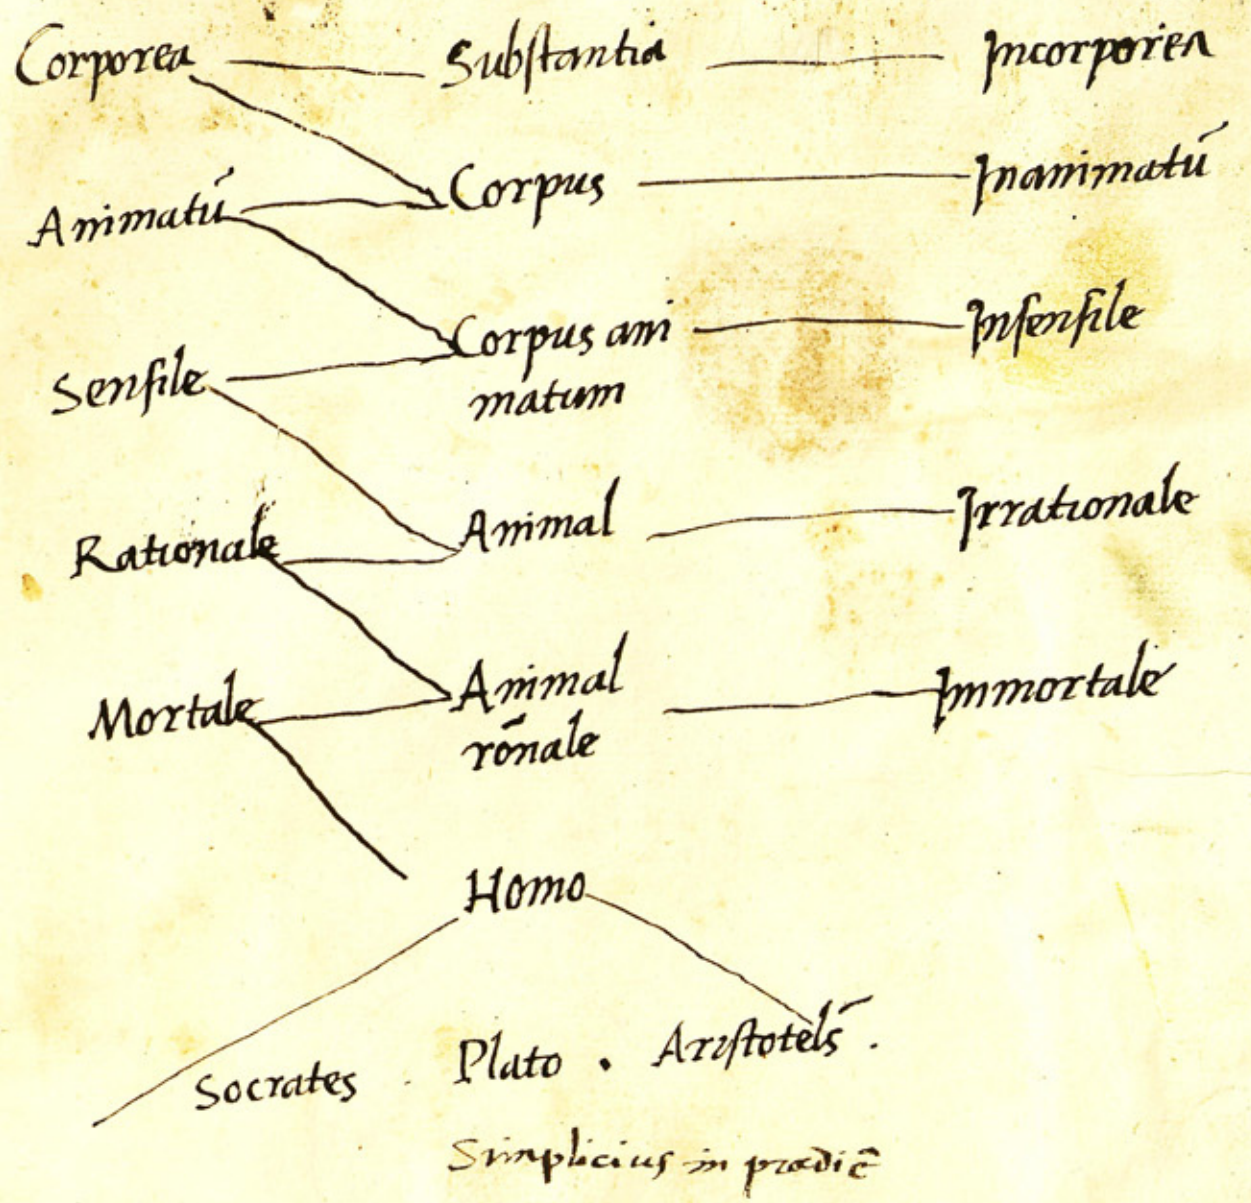 Corporea Substantia Incorporea
Animatū Corpus Inanimatū
Sensile Corpus ani Insensile
matum
Rationale Animal Irrationale
Mortale Animal Immortale
rōnale
Homo
Socrates . Plato . Aristotel̄s .
Simplicius in prædic̄